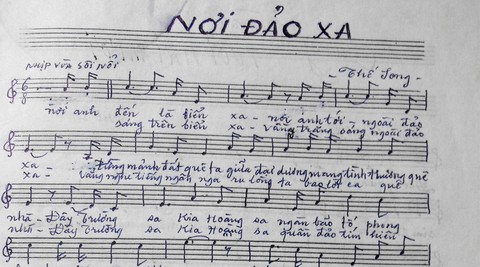 NƠI ĐẢO XA
NHỊP VỪA SÔI NỔI
- Thế Song -
nơi anh đến là biển xa - nơi anh tới - ngoài đảo
sáng trên biển xa - Vầng trăng sáng ngoài đảo
xa - Từng mảnh đất quê ta giữa đại dương mang tình thương quê
xa - Vẳng nghe tiếng ngân nga ru lòng ta bao lời ca quê
nhà - Đây Trường sa Kia Hoàng sa ngàn bão tố, phong
nhà - Đây Trường sa Kia Hoàng sa quần đảo